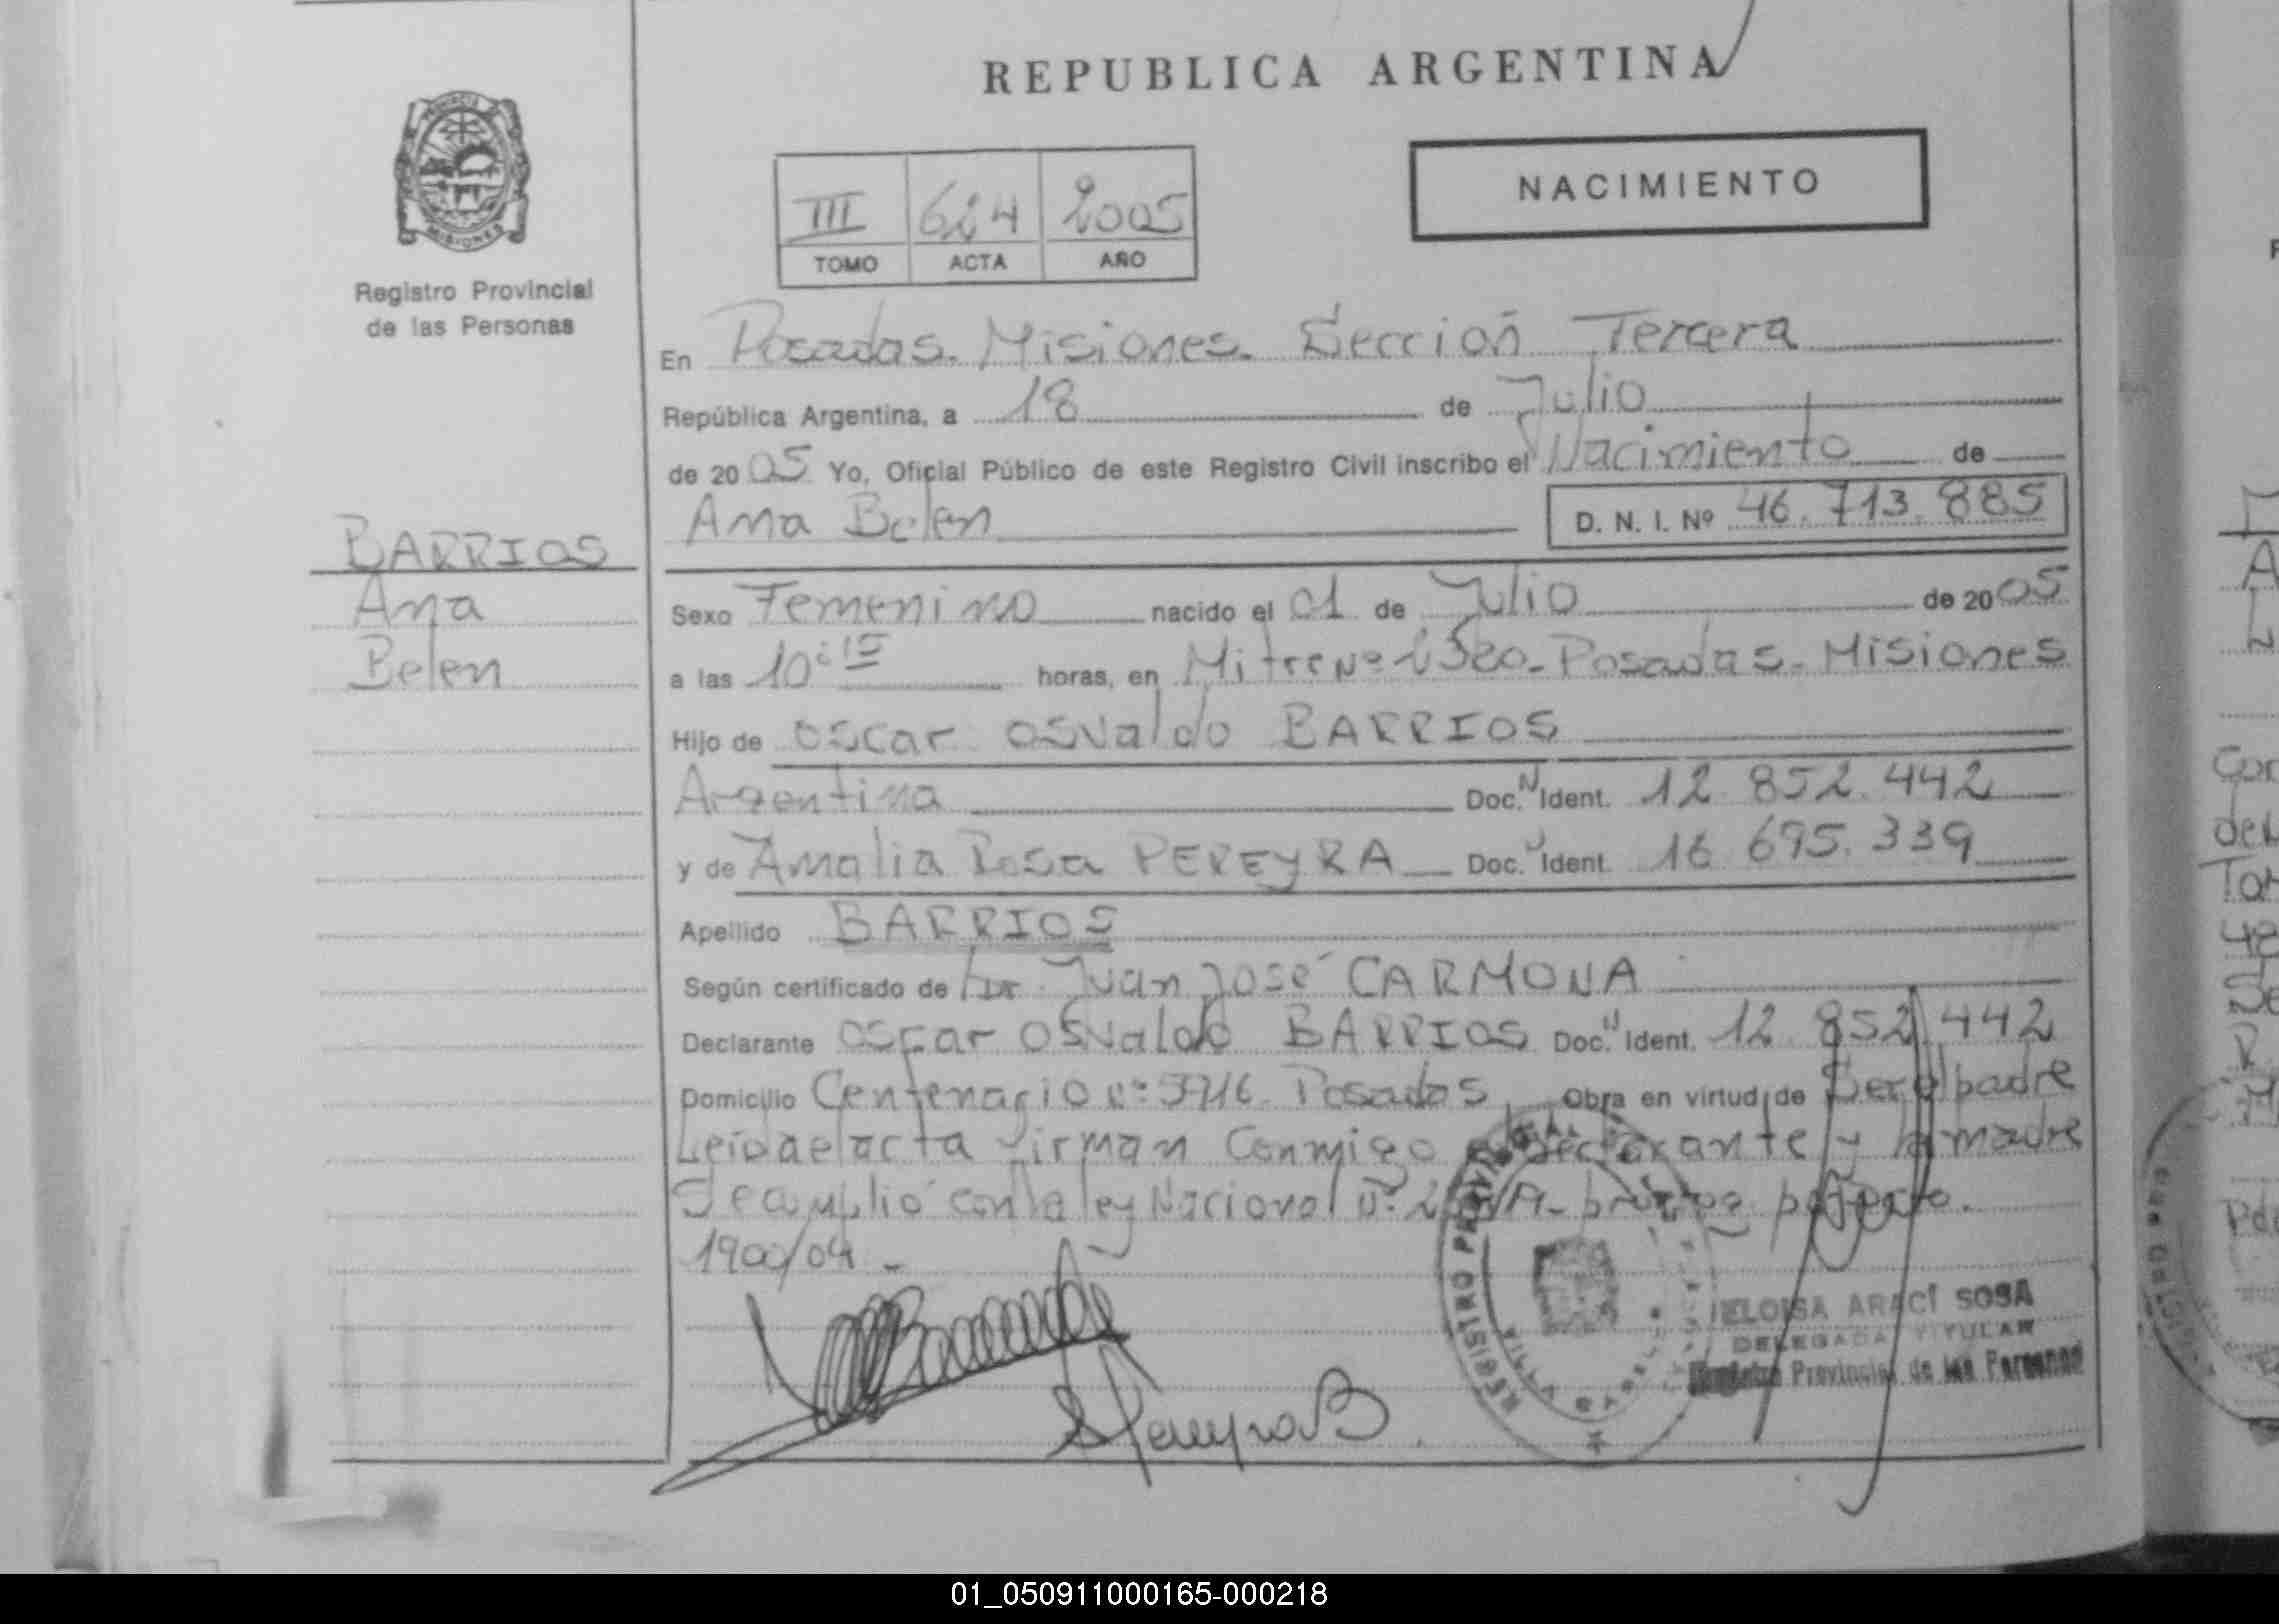 REPUBLICA ARGENTINA
PROVINCIA DE
MISIONES
Registro Provincial
de las Personas
III 624 2005
TOMO ACTA AÑO
NACIMIENTO
En Posadas. Misiones. Sección Tercera
República Argentina, a 18 de Julio
de 2005 Yo, Oficial Público de este Registro Civil inscribo el Nacimiento de
Ana Belen D. N. I. Nº 46.713.885
BARRIOS
Ana
Belen
Sexo Femenino nacido el 01 de Julio de 2005
a las 10:15 horas, en Mitre Nº Posadas. Misiones
Hijo de Oscar Osvaldo BARRIOS
Argentina Doc. N Ident. 12.852.442
y de Amalia Rosa PEREYRA Doc. Ident. 16.695.339
Apellido BARRIOS
Según certificado de Dr. Juan José CARMONA
Declarante Oscar Osvaldo BARRIOS Doc. N Ident. 12.852.442
Domicilio Centenario Posadas Obra en virtud de Ser el padre
Leida el acta firman Conmigo el declarante y la madre
Se cumplió con la ley Nacional
REGISTRO PROVINCIAL
ELOISA ARACI SOSA
DELEGADA TITULAR
Registro Provincial de las Personas
Pereyra B
01_050911000165-000218